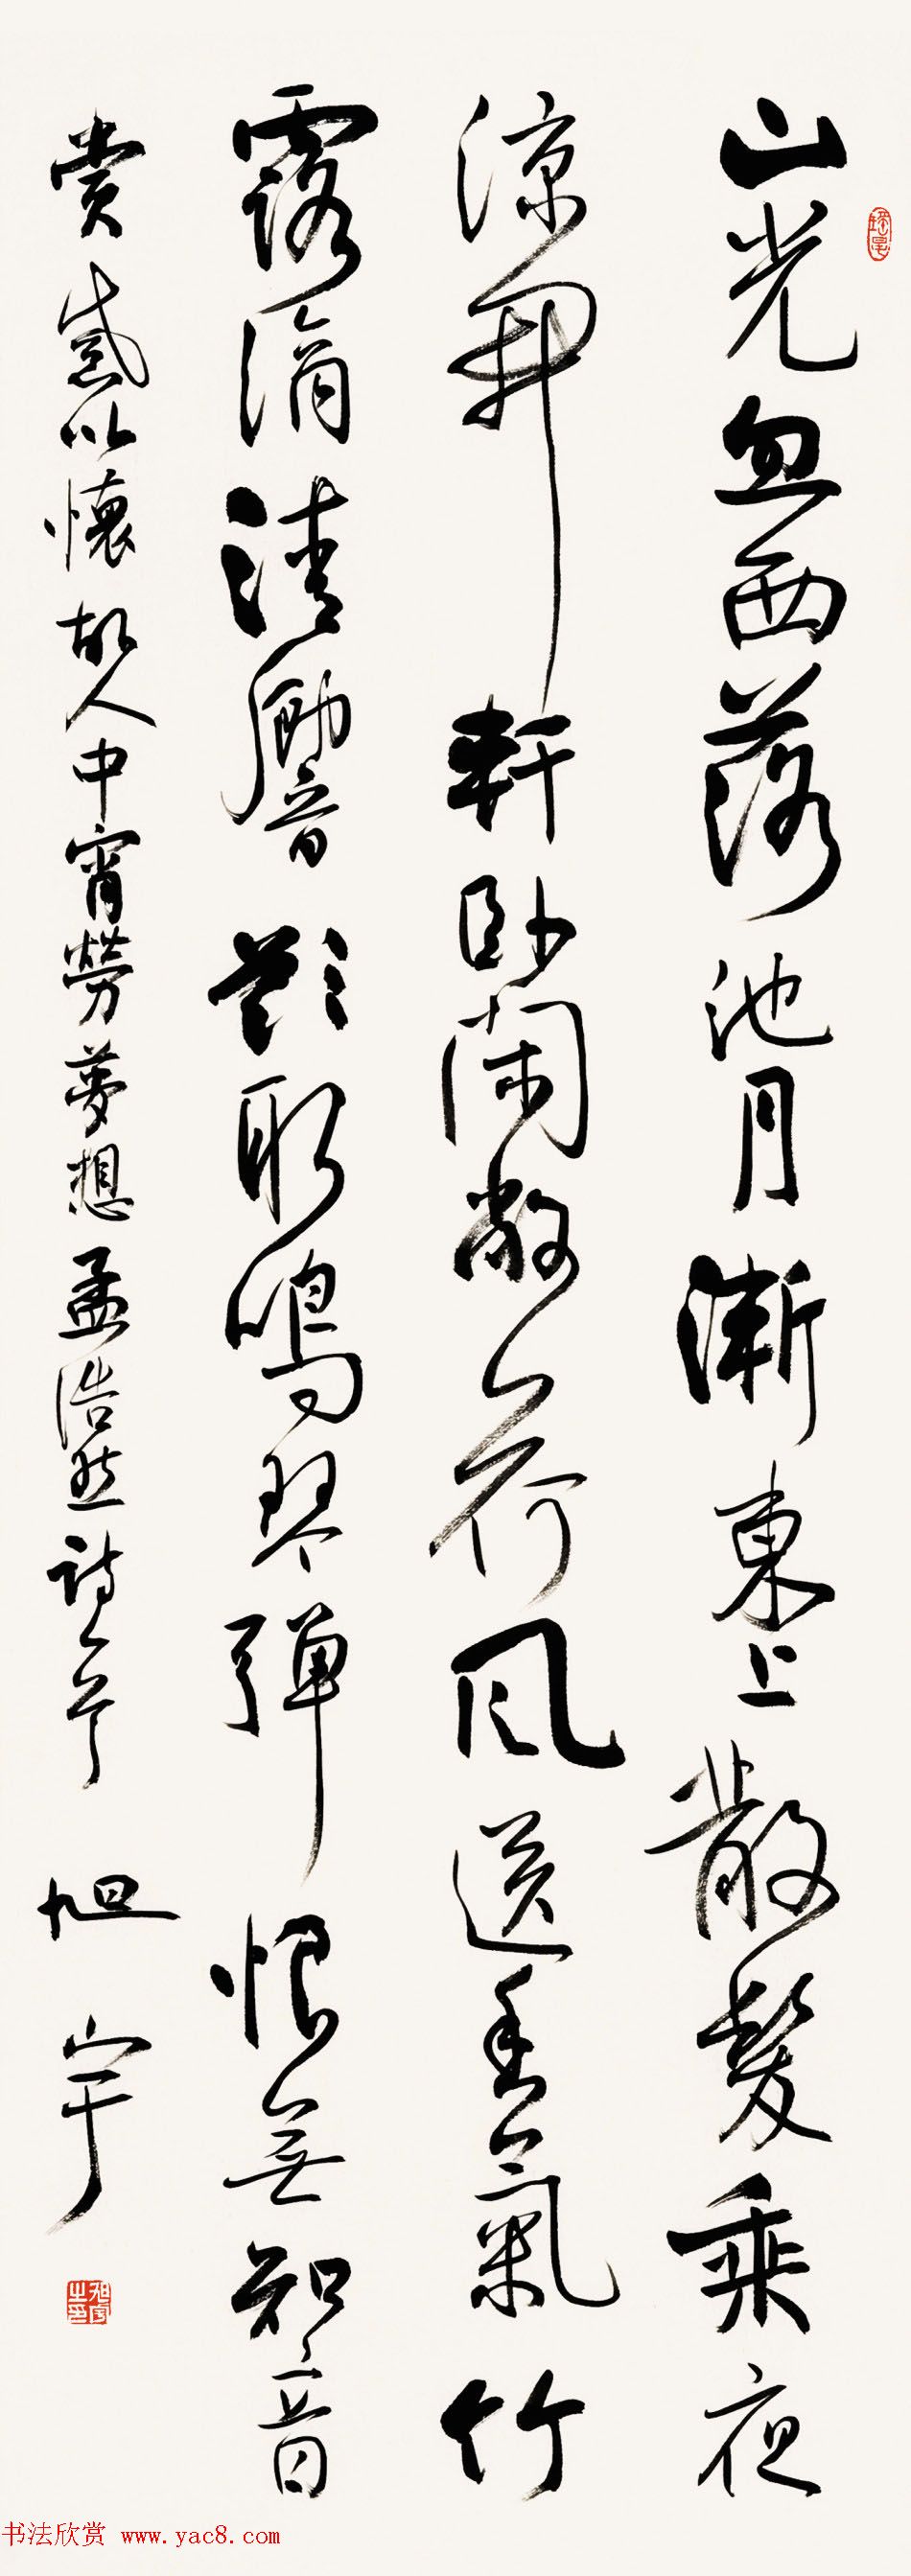 山光忽西落池月漸東上散髮乘夜
涼開軒卧閑敞荷風送香氣竹
露滴清響欲取鳴琴彈恨無知音
賞感此懷故人中宵勞夢想 孟浩然詩一首 旭宇
旭宇之印
书法欣赏 www.yac8.com